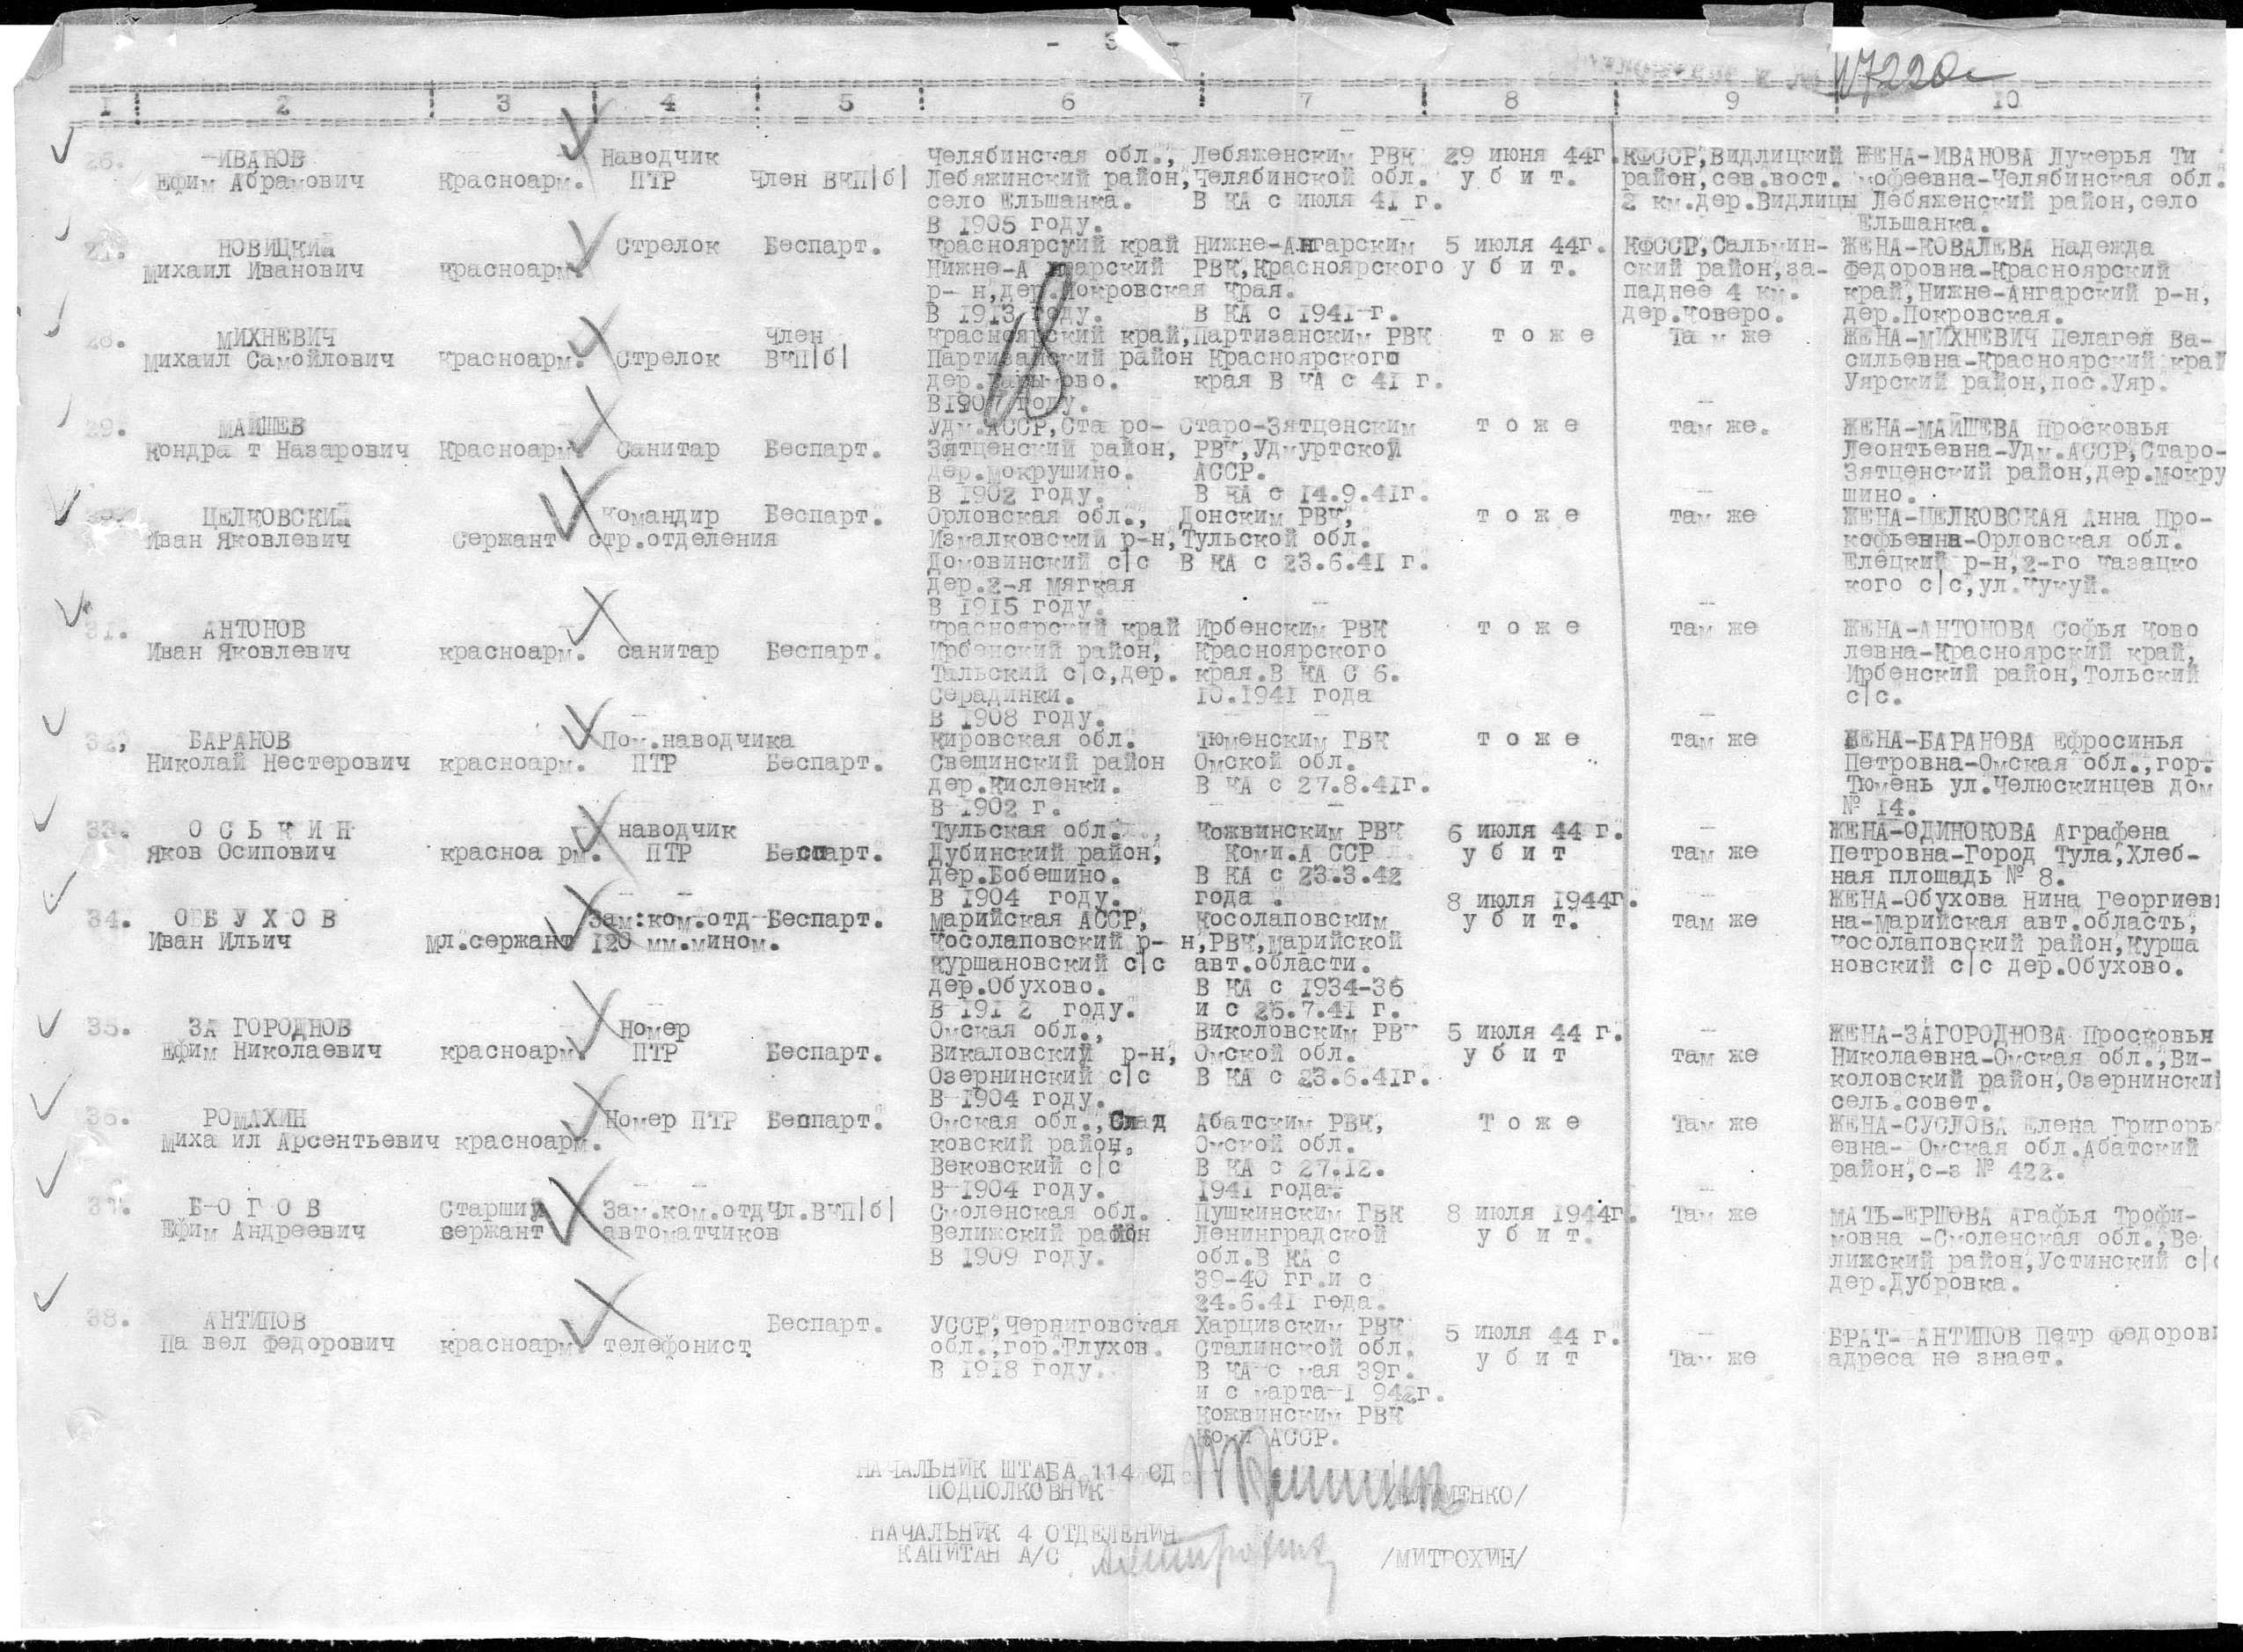 - 3 -
17220
1 2 3 4 5 6 7 8 9 10
26. ИВАНОВ Наводчик Челябинская обл., Лебяженским РВК 29 июня 44г. КФССР,Видлицкий ЖЕНА-ИВАНОВА Лукерья Ти
Ефим Абрамович Красноарм. ПТР Член ВКП|б| Лебяжинский район, Челябинской обл. у б и т. район,сев.вост. мофеевна-Челябинская обл.
село Ельшанка. В КА с июля 41 г. 2 км.дер.Видлицы Лебяженский район,село
В 1905 году. Ельшанка.
27. НОВИЦКИЙ Стрелок Беспарт. Красноярский край Нижне-Ангарским 5 июля 44г. КФССР,Сальмин- ЖЕНА-КОВАЛЕВА Надежда
Михаил Иванович Красноарм. Нижне-Ангарский РВК,Красноярского у б и т. ский район,за- Федоровна-Красноярский
р- н,дер.Покровская Края. паднее 4 км. край,Нижне-Ангарский р-н,
В 1913 году. В КА с 1941 г. дер.Коверо. дер.Покровская.
28. МИХНЕВИЧ Член Красноярский край, Партизанским РВК т о ж е Та м же ЖЕНА-МИХНЕВИЧ Пелагея Ва-
Михаил Самойлович Красноарм. Стрелок ВКП|б| Партизанский район Красноярского сильевна-Красноярский край
дер. края В КА с 41 г. Уярский район,пос.Уяр.
В 1907 году.
29. МАЙШЕВ Удм.АССР,Ста ро- Старо-Зятценским т о ж е там же. ЖЕНА-МАЙШЕВА Просковья
Кондра т Назарович Красноарм. Санитар Беспарт. Зятценский район, РВК,Удмуртской Леонтьевна-Удм.АССР,Старо-
дер.Мокрушино. АССР. Зятценский район,дер.Мокру
В 1902 году. В КА с 14.9.41г. шино.
30. ЦЕЛКОВСКИЙ Командир Беспарт. Орловская обл., Донским РВК, т о ж е там же ЖЕНА-ЦЕЛКОВСКАЯ Анна Про-
Иван Яковлевич Сержант стр.отделения Измалковский р-н, Тульской обл. кофьевна-Орловская обл.
Домовинский с|с В КА с 23.6.41 г. Елецкий р-н,2-го Казацко
дер.2-я Мягкая кого с|с,ул.Кукуй.
В 1915 году.
31. АНТОНОВ Красноярский край Ирбенским РВК т о ж е там же ЖЕНА-АНТОНОВА Софья Ково
Иван Яковлевич красноарм. санитар Беспарт. Ирбенский район, Красноярского левна-Красноярский край,
Тальский с|с,дер. края.В КА С 6. Ирбенский район,Тольский
Серадинки. 10.1941 года с|с.
В 1908 году.
32, БАРАНОВ Пом.наводчика Кировская обл. Тюменским ГВК т о ж е там же ЖЕНА-БАРАНОВА Ефросинья
Николай Нестерович красноарм. ПТР Беспарт. Свещинский район Омской обл. Петровна-Омская обл.,гор.
дер.Кисленки. В КА с 27.8.41г. Тюмень ул.Челюскинцев дом
В 1902 г. № 14.
33. О С Ь К И Н наводчик Тульская обл., Кожвинским РВК 6 июля 44 г. ЖЕНА-ОДИНОКОВА Аграфена
Яков Осипович красноа рм. ПТР Беспарт. Дубинский район, Коми.А ССР у б и т там же Петровна-Город Тула,Хлеб-
дер.Бобешино. В КА с 23.3.42 ная площадь № 8.
В 1904 году. года . 8 июля 1944г. ЖЕНА-Обухова Нина Георгиев
34. ОБ У Х О В Зам:ком.отд Беспарт. Марийская АССР, Косолаповским у б и т. там же на-Марийская авт.область,
Иван Ильич Мл.сержант 120 мм.мином. Косолаповский р- н,РВК,Марийской Косолаповский район,Курша
Куршановский с|с авт.области. новский с|с дер.Обухово.
дер.Обухово. В КА с 1934-36
В 191 2 году. и с 25.7.41 г.
35. ЗА ГОРОДНОВ Номер Омская обл., Виколовским РВК 5 июля 44 г. ЖЕНА-ЗАГОРОДНОВА Просковья
Ефим Николаевич красноарм. ПТР Беспарт. Викаловский р-н, Омской обл. у б и т там же Николаевна-Омская обл.,Ви-
Озернинский с|с В КА с 23.6.41г. коловский район,Озернинский
В 1904 году. сель.совет.
36. РОМАХИН Номер ПТР Беспарт. Омская обл.,Слад Абатским РВК, Т о ж е Там же ЖЕНА-СУСЛОВА Елена Григорь
Миха ил Арсентьевич красноарм. ковский район, Омской обл. евна- Омская обл.Абатский
Вековский с|с В КА с 27.12. район,с-з № 422.
В 1904 году. 1941 года.
37. Б О Г О В Старший Зам.ком.отд Чл.ВКП|б| Смоленская обл. Пушкинским ГВК 8 июля 1944г. Там же МАТЬ-ЕРШОВА Агафья Трофи-
Ефим Андреевич сержант автоматчиков Велижский район Ленинградской у б и т. мовна -Смоленская обл.,Ве
В 1909 году. обл.В КА с лижский район,Устинский с|с
39-40 гг.и с дер.Дубровка.
24.6.41 года.
38. АНТИПОВ Беспарт. УССР,Черниговская Харцизским РВК 5 июля 44 г. БРАТ- АНТИПОВ Петр Федорови
Па вел Федорович красноарм. телефонист обл.,гор.Глухов. Сталинской обл. у б и т Там же адреса не знает.
В 1918 году. В КА с мая 39г.
и с марта 1 942г.
Кожвинским РВК
Коми АССР.
НАЧАЛЬНИК ШТАБА 114 СД
ПОДПОЛКОВНИК
НАЧАЛЬНИК 4 ОТДЕЛЕНИЯ
КАПИТАН А/С Митрохин /МИТРОХИН/